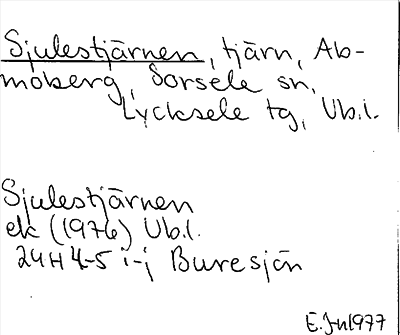 Sjulestjärnen, tjärn, Ab-
moberg, Sorsele sn,
Lycksele tg, Vb.l.
Sjulestjärnen
ek (1976) Vb.l.
24H 4-5 i-j Buresjön
E.J-n 1977